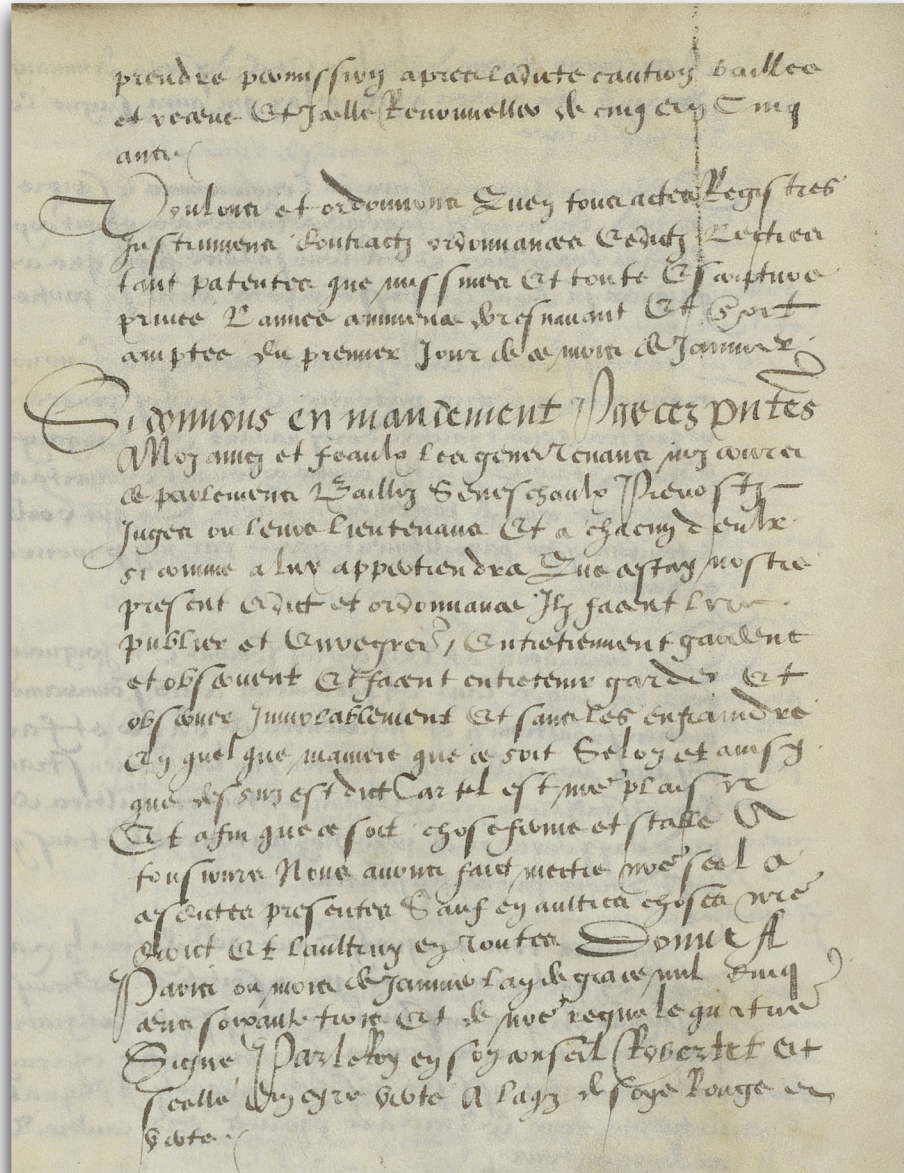 prendre permission apres ladicte caution baillee
et receue Et Icelle Renouveller de cinq en Cinq
ans
Voulons et ordonnons Quen tous actes Registres
Instrumens Contractz ordonnances Edictz Lectres
tant patentes que missives Et toute Escripture
privee L'annee commence doresnavant Et soit
comptee du premier Jour de ce mois de Janvier
Si donnons en mandement Par ces pntes
A Noz amez et feaulx les gens tenans noz cours
de parlemens Baillyz Seneschaulx Prevostz
Juges ou leurs lieutenans Et a chacun d'eulx
si comme a luy appertiendra Que cestuy nostre
present edict et ordonnance Ilz facent lire
publier et Enregrer, Entretiennent gardent
et observent Et facent entretenir garder Et
observer Inviolablement Et sans les enfraindre
En quelque maniere que ce soit Selon et ainsy
que dessus est dict Car tel est nre plaisir
Et afin que ce soit chose ferme et stable A
tousiours Nous avons faict mectre nre seel a
cesdictes presentes Sauf en aultres choses nre
droict Et l'aultruy en toutes Donne A
Paris ou mois de Janvier l'an de grace mil Cinq
cens soixante trois Et de nre regne le quatrie
Signe Par le Roy en son conseil Robertet Et
seelle en cyre verte A lacqz de soye Rouge et
verte.